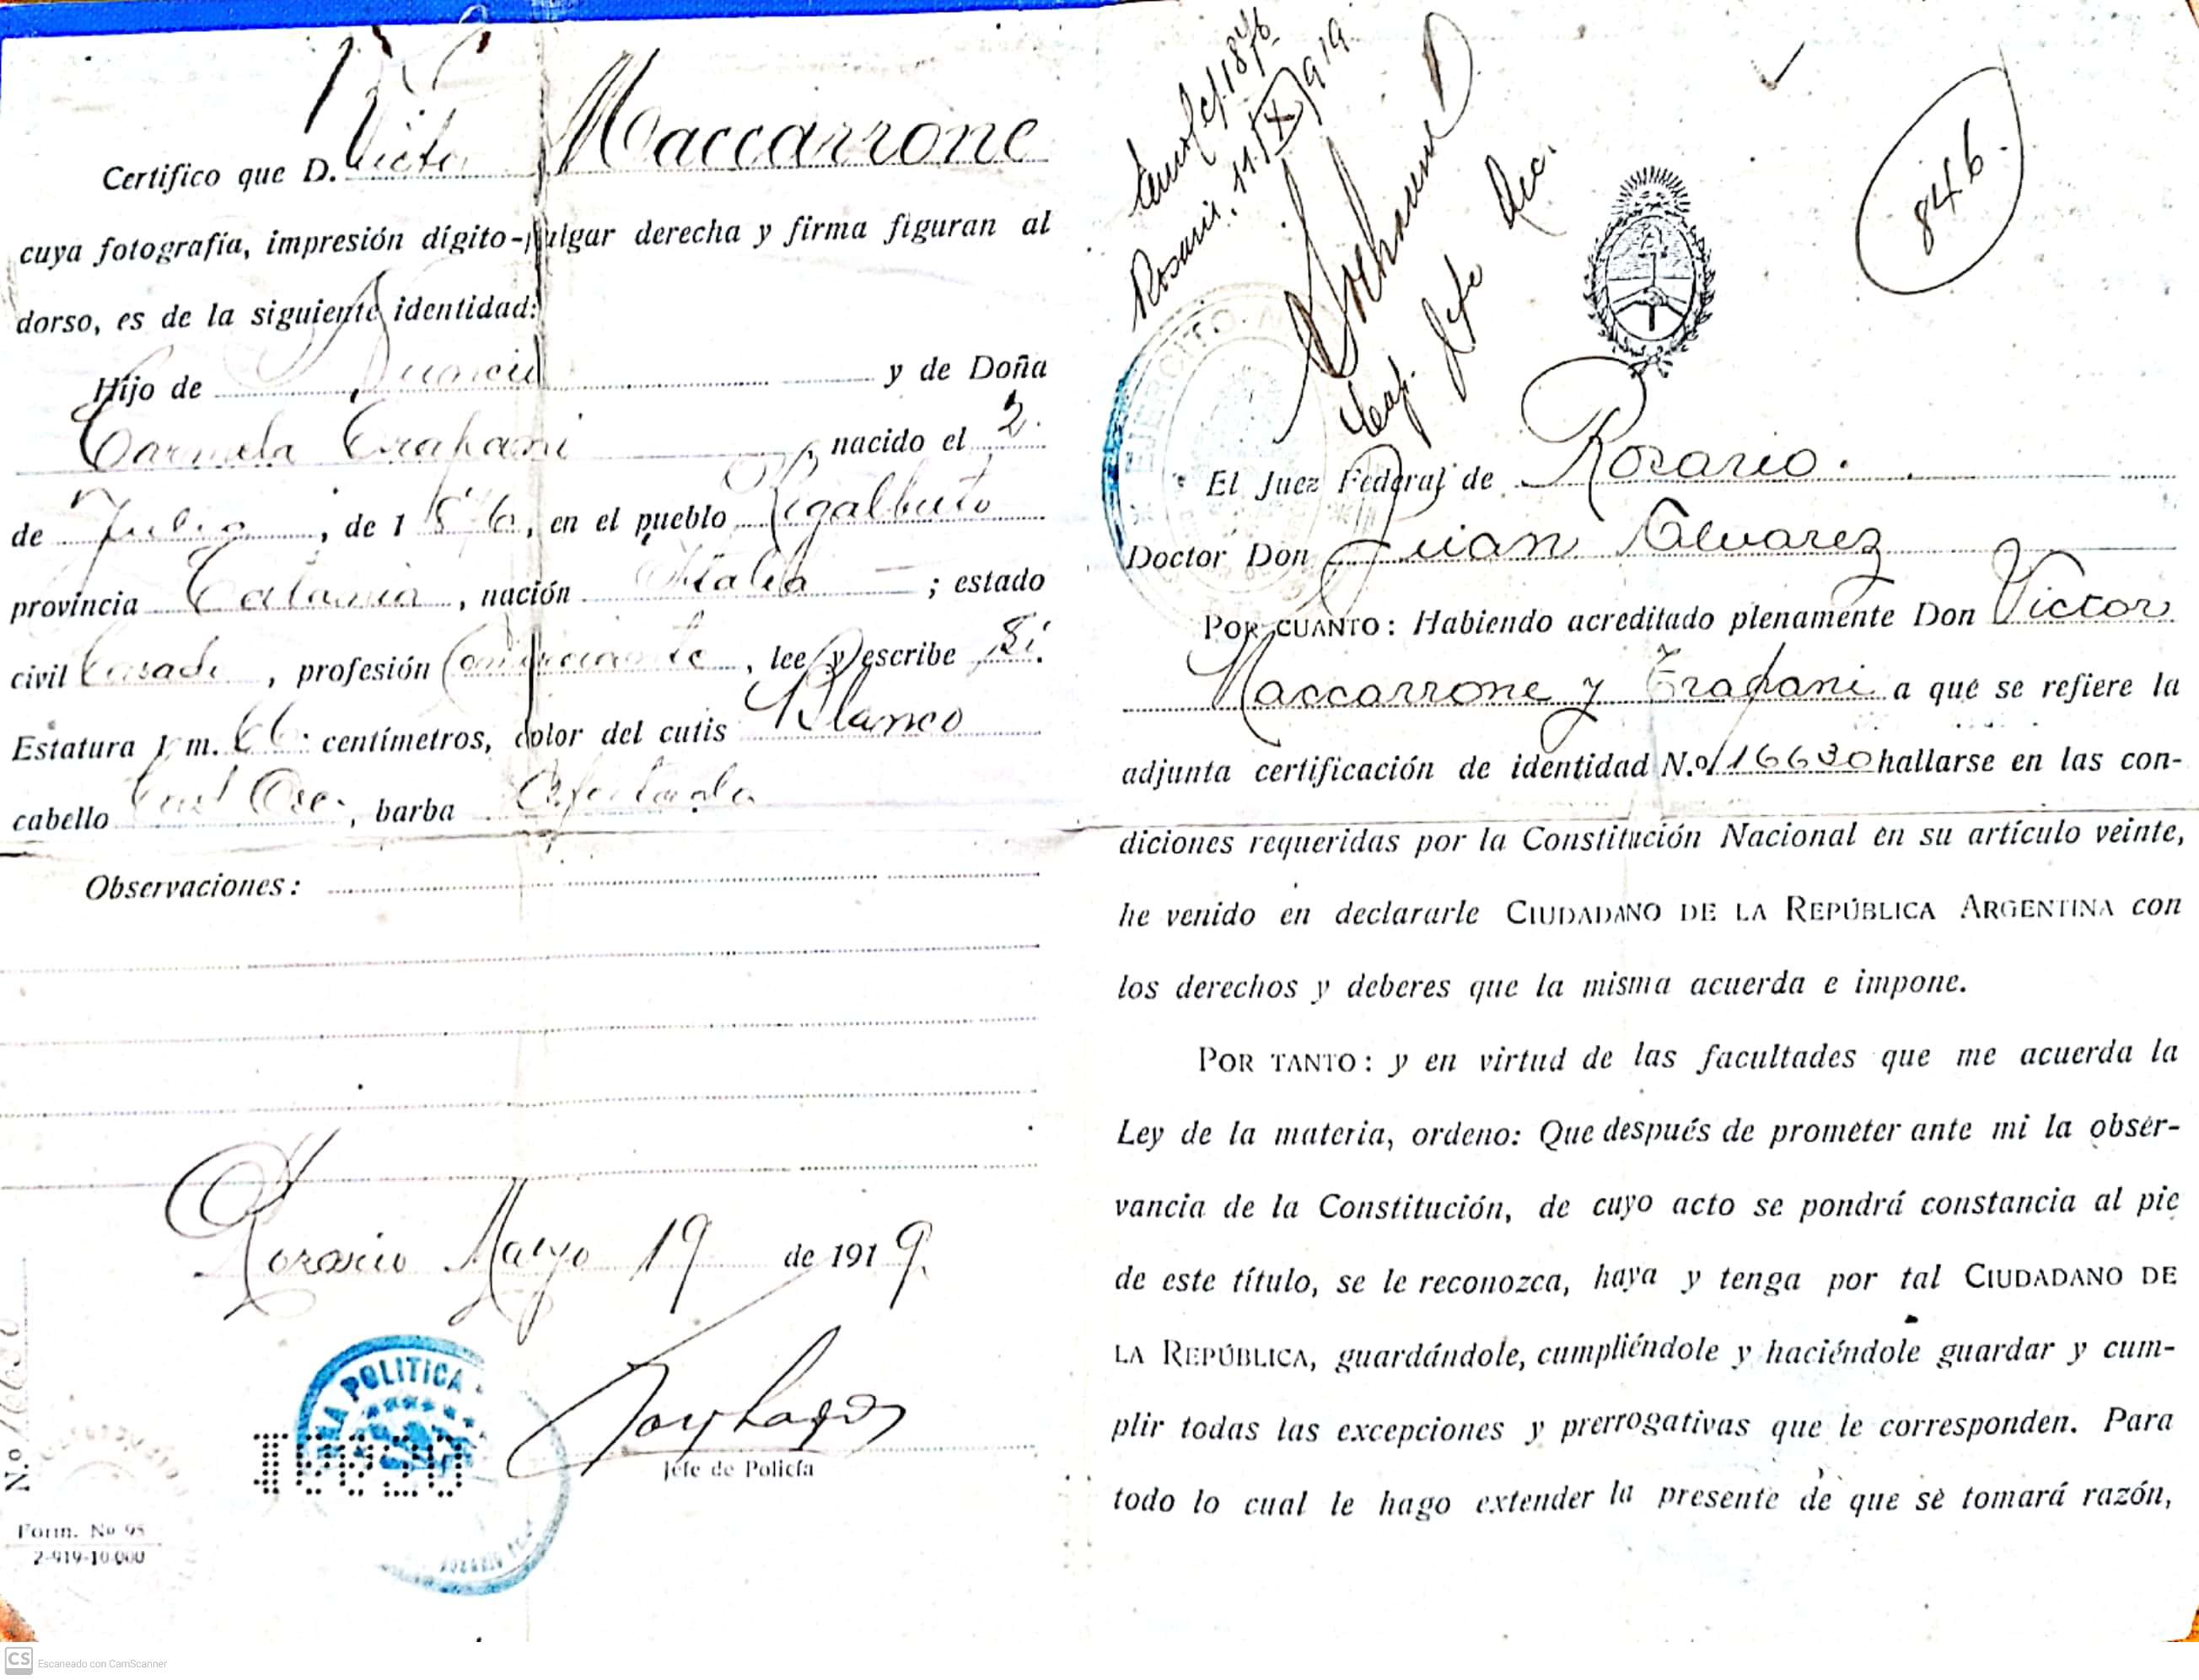 Certifico que D. Victor Maccarrone
cuya fotografía, impresión dígito-pulgar derecha y firma figuran al
dorso, es de la siguiente identidad:
Hijo de Nuncio y de Doña
Carmela Trapani, nacido el 2
de Julio, de 1876, en el pueblo Regalbuto
provincia Catania, nación Italia; estado
civil Casado, profesión Comerciante, lee y escribe Sí.
Estatura 1 m. 66 centímetros, color del cutis Blanco
cabello Cast Osc., barba Afeitada
Observaciones:
Rosario Mayo 19 de 1919.
POLITICA
16630
Jefe de Policía
N.o 16630
Form. No 95
2-919-10.000
Rosario, 11/IX/919
Jefe
846.
EJERCITO
El Juez Federal de Rosario.
Doctor Don Juan Alvarez
POR CUANTO: Habiendo acreditado plenamente Don Victor
Maccarrone y Trapani a que se refiere la
adjunta certificación de identidad N.o 16630 hallarse en las con-
diciones requeridas por la Constitución Nacional en su artículo veinte,
he venido en declararle CIUDADANO DE LA REPÚBLICA ARGENTINA con
los derechos y deberes que la misma acuerda e impone.
POR TANTO: y en virtud de las facultades que me acuerda la
Ley de la materia, ordeno: Que después de prometer ante mi la obser-
vancia de la Constitución, de cuyo acto se pondrá constancia al pie
de este título, se le reconozca, haya y tenga por tal CIUDADANO DE
LA REPÚBLICA, guardándole, cumpliéndole y haciéndole guardar y cum-
plir todas las excepciones y prerrogativas que le corresponden. Para
todo lo cual le hago extender la presente de que se tomará razón,
CS Escaneado con CamScanner